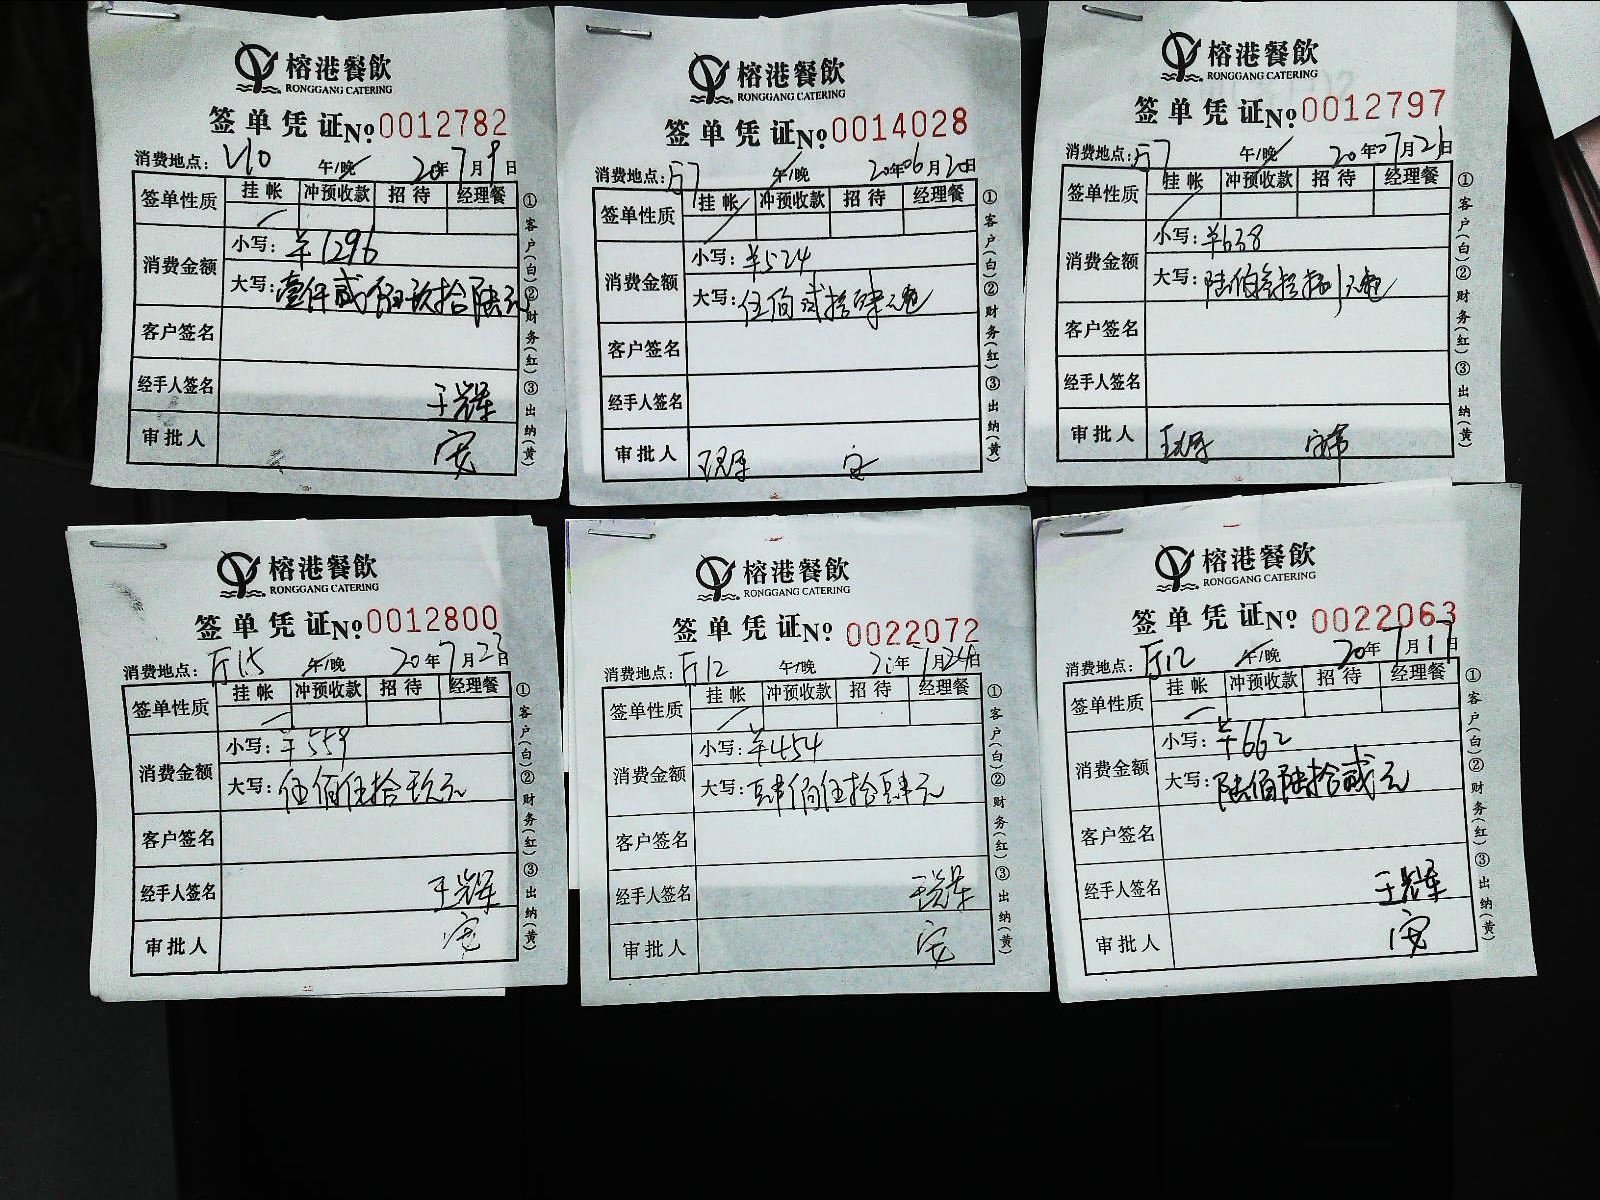 榕港餐飲
RONGGANG CATERING
签单凭证 No 0012782
消费地点: V10 午/晚 20年7月9日
签单性质 挂帐 冲预收款 招待 经理餐
消费金额
小写: ¥1296
大写: 壹仟贰佰玖拾陆元
客户签名
经手人签名
审批人
①客户(白)②财务(红)③出纳(黄)
榕港餐飲
RONGGANG CATERING
签单凭证 No 0014028
消费地点: 厅7 午/晚 20年06月20日
签单性质 挂帐 冲预收款 招待 经理餐
消费金额
小写: ¥524
大写: 伍佰贰拾肆元
客户签名
经手人签名
审批人
①客户(白)②财务(红)③出纳(黄)
榕港餐飲
RONGGANG CATERING
签单凭证 No 0012797
消费地点: 厅7 午/晚 20年07月21日
签单性质 挂帐 冲预收款 招待 经理餐
消费金额
小写: ¥638
大写: 陆佰叁拾捌元
客户签名
经手人签名
审批人
①客户(白)②财务(红)③出纳(黄)
榕港餐飲
RONGGANG CATERING
签单凭证 No 0012800
消费地点: 厅15 午/晚 20年7月23日
签单性质 挂帐 冲预收款 招待 经理餐
消费金额
小写: ¥559
大写: 伍佰伍拾玖元
客户签名
经手人签名 王辉
审批人
①客户(白)②财务(红)③出纳(黄)
榕港餐飲
RONGGANG CATERING
签单凭证 No 0022072
消费地点: 厅12 午/晚 20年7月24日
签单性质 挂帐 冲预收款 招待 经理餐
消费金额
小写: ¥454
大写: 肆佰伍拾肆元
客户签名
经手人签名
审批人
①客户(白)②财务(红)③出纳(黄)
榕港餐飲
RONGGANG CATERING
签单凭证 No 0022063
消费地点: 厅12 午/晚 20年7月17日
签单性质 挂帐 冲预收款 招待 经理餐
消费金额
小写: ¥662
大写: 陆佰陆拾贰元
客户签名
经手人签名
审批人
①客户(白)②财务(红)③出纳(黄)